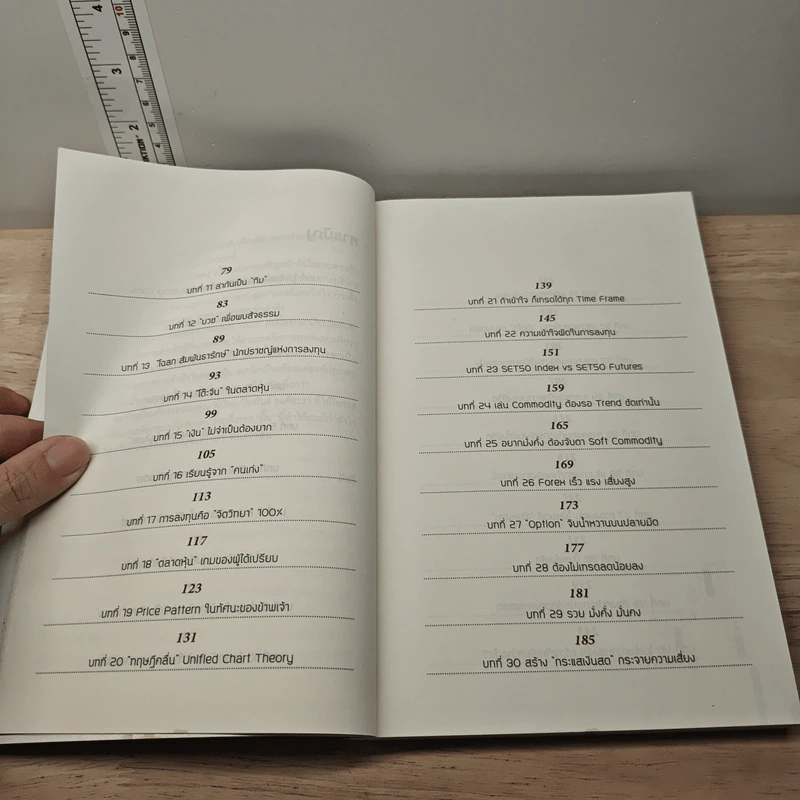 79
บทที่ 11 ล่าฝันเป็น "ทีม"
83
บทที่ 12 "บวช" เพื่อพบสัจธรรม
89
บทที่ 13 "โฉลก สัมพันธารักษ์" นักปราชญ์แห่งการลงทุน
93
บทที่ 14 "โต๊ะจีน" ในตลาดหุ้น
99
บทที่ 15 "เงิน" ไม่จำเป็นต้องยาก
105
บทที่ 16 เรียนรู้จาก "คนเก่ง"
113
บทที่ 17 การลงทุนคือ "จิตวิทยา" 100%
117
บทที่ 18 "ตลาดหุ้น" เกมของผู้ได้เปรียบ
123
บทที่ 19 Price Pattern ในทัศนะของข้าพเจ้า
131
บทที่ 20 "ทฤษฎีคลื่น" Unified Chart Theory
139
บทที่ 21 ถ้าเข้าใจ ก็เทรดได้ทุก Time Frame
145
บทที่ 22 ความเข้าใจผิดในการลงทุน
151
บทที่ 23 SET50 Index vs SET50 Futures
159
บทที่ 24 เล่น Commodity ต้องรอ Trend ชัดเท่านั้น
165
บทที่ 25 อยากมั่งคั่ง ต้องจับตา Soft Commodity
169
บทที่ 26 Forex เร็ว แรง เสี่ยงสูง
173
บทที่ 27 "Option" จิบน้ำหวานบนปลายมีด
177
บทที่ 28 ต้องไม่เทรดลดน้อยลง
181
บทที่ 29 รวย มั่งคั่ง มั่นคง
185
บทที่ 30 สร้าง "กระแสเงินสด" กระจายความเสี่ยง